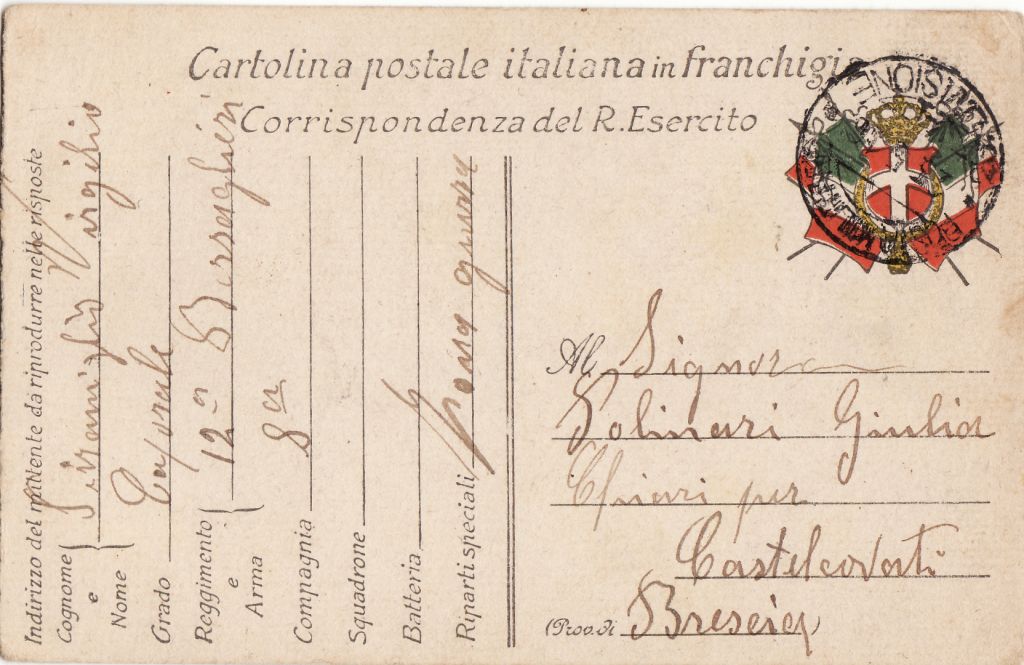 Cartolina postale italiana in franchigia
Corrispondenza del R. Esercito
Indirizzo del mittente da riprodurre nelle risposte
Cognome e Nome { Virgilio
Grado Caporale
Reggimento e Arma { 12º Bersaglieri
Compagnia 8a
Squadrone
Batteria
Riparti speciali Zona guerra
DIVISIONE
Al Signora
Polinari Giulia
Chiari per
Castelcovati
(Prov. di Brescia)